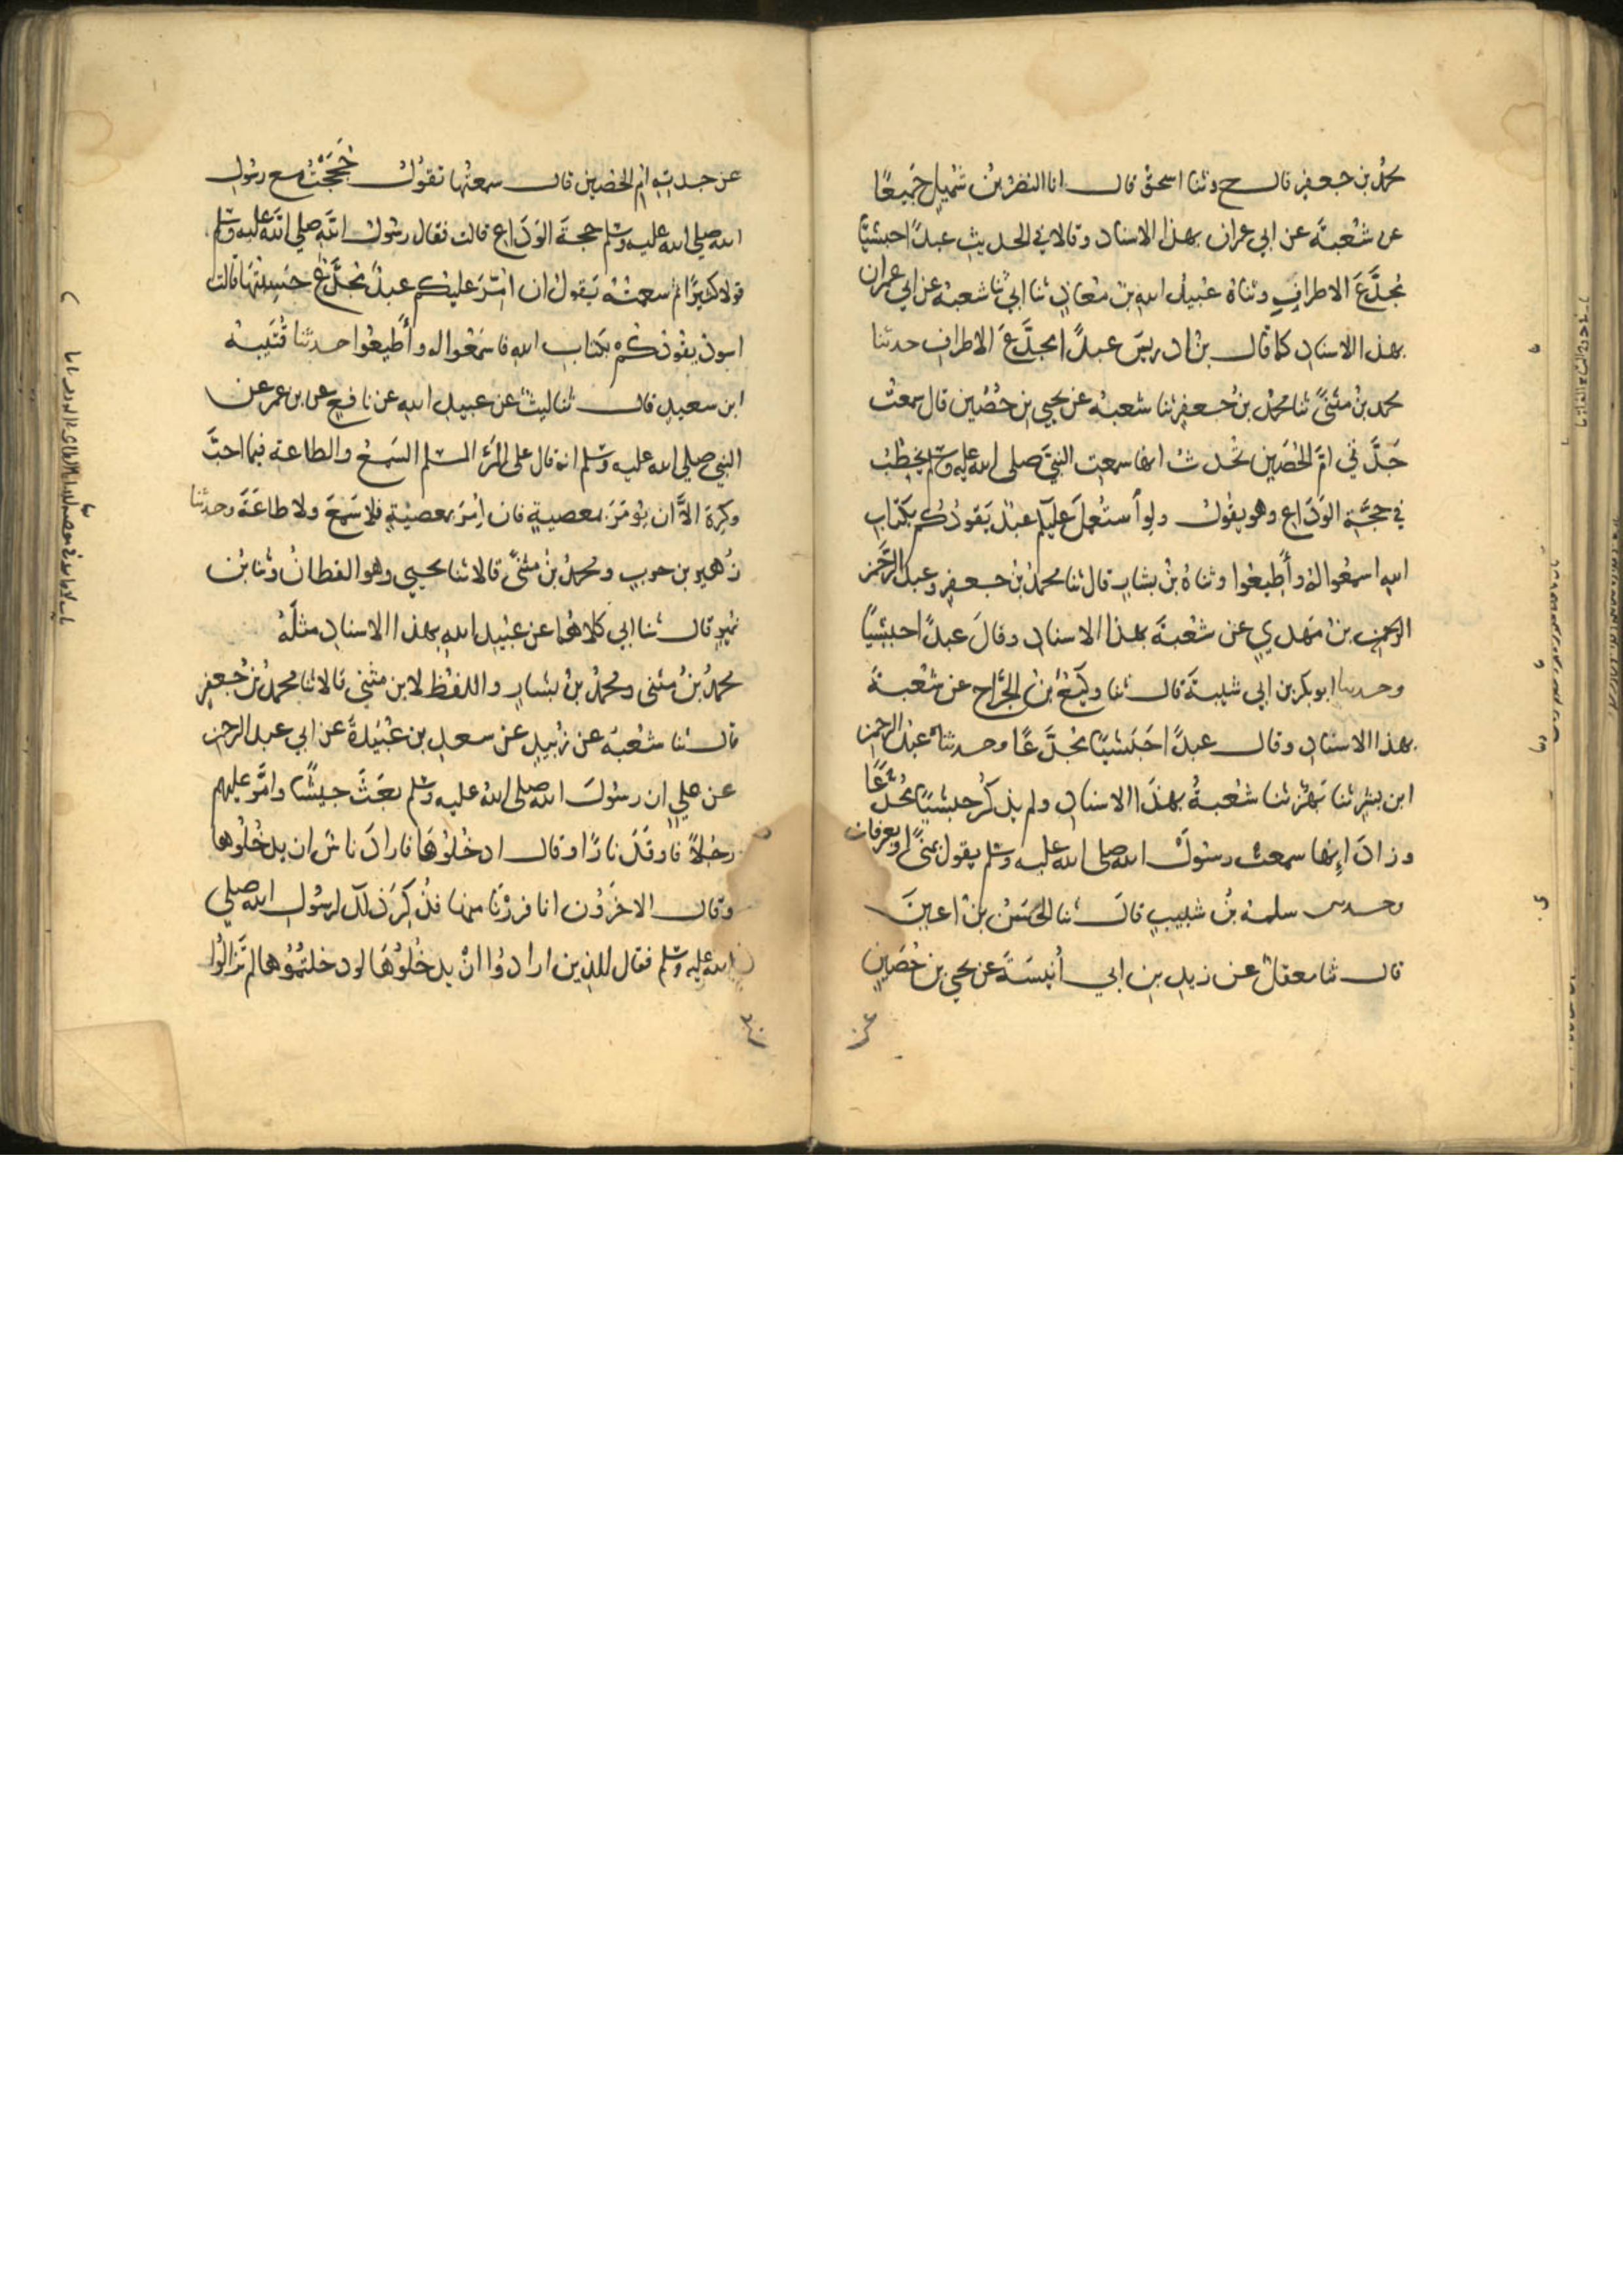 محمد بن جعفر قال ح وثنا اسحق قال انا النضر بن شميل جَميعًا
عن شعبة عن ابي عمران بهذا الاسناد وقالا في الحديث عبدًا حبشيًّا
مُجدَّعَ الاطرافِ وثناهُ عُبيدُ اللهِ بن مُعاذٍ ثنا ابي ثنا شعبة عن ابي عمران
بهذا الاسنادِ كما قال بن ادريسَ عبدًا مجدَّعَ الاطراف حدثنا
محمد بن مثنىً ثنا محمدُ بن جعفرٍ ثنا شعبة عن يحيى بن حُصَين قال سمعتُ
جَدَّتي امَّ الحُصَين تُحدثُ انها سمعت النبيَّ صلى الله عليه وسلم يخطُبُ
في حجَّةِ الوَدَاعِ وهو يقولُ ولو اُستُعمِلَ عليكم عبدٌ يَقودُكم بكتابِ
اللهِ اسمعُوا لهُ وأطِيعُوا وثناهُ بنُ بشارٍ قال ثنا محمدُ بن جعفرٍ وعبدُ الرَّحمن
الرحمن بنُ مَهدي عن شُعبةَ بهذا الاسنادِ وقالَ عبدًا حبشيًا
وحدثنا ابو بكر بن ابي شيبةَ قال ثنا وكيعُ بنُ الجَرَّاحِ عن شُعبةَ
بهذا الاسنادِ وقال عبدًا حَبَشيًا مُجدَّعًا وحدثنا عبدُ الرحمن
ابن بِشرٍ ثنا بَهزٌ ثنا شُعبةُ بهذَا الاسنادِ ولم يذكُر حبشيًا مُجدَّعًا
وزادَ اِنها سمعت رسولَ الله صلى الله عليه وسلم يقول بمنًى او بعرفات
وحدثني سلمة بنُ شَبيبٍ قالَ ثنا الحَسَنُ بنُ اعينَ
قال ثنا معقلٌ عن زيدِ بنِ ابي أُنَيسَةَ عن يحيى بن حُصَينٍ
عن جدتِهِ امِّ الحُصَين قال سمعتُها تقولُ حَجَجْتُ مع رسُولِ
الله صلى الله عليه وسلم حجةَ الوَدَاعِ قالت فقال رسُولُ اللهِ صلى الله عليه وسلم
قولا كثيرًا ثم سمعتُهُ يَقولُ ان اُمِّرَ عليكم عبدٌ مُجدَّعٌ حَسِبتُها قالت
اسود يقودُكُم بكتابِ اللهِ فاسمَعُوا له وأطيعُوا حدثنا قُتَيبةُ
ابن سعيدٍ قال ثنا ليثٌ عن عبيدِ اللهِ عن نافعٍ عن بن عمر عن
النبي صلى الله عليه وسلم انه قال على المَرْءِ المسلم السَمعُ والطاعة فيما احبَّ
وكرهَ الاَّ ان يُؤمَرَ بمعصيةٍ فان اُمِرَ بمعصيةٍ فلا سَمعَ ولا طاعَةَ وحدثنا
زُهير بن حربٍ ومحمدُ بن مثنىً قالا ثنا يحيى وهو القطانُ وثنا بن
نُميرٍ قال ثنا ابي كلاهُما عن عُبيدِ اللهِ بهذا الاسنادِ مثلَهُ
محمدُ بنُ مثنى ومحمدُ بنُ بشارٍ واللفظ لابن مثنى قالا ثنا محمدُ بنُ جعفرٍ
قال ثنا شعبة عن زُبيدٍ عن سعدِ بن عُبَيدةَ عن ابي عبد الرحمن
عن عليٍ ان رسُولَ الله صلى اللهُ عليه وسلم بعَثَ جيشًا وامَّر عليهم
رجُلاً فاوقَدَ نارًا وقال ادخُلُوهَا فارادَ ناسٌ ان يدخُلُوها
وقال الاخَرُون انا فررْنا منها فذُكِرَ ذلك لرسُولِ الله صلى
الله عليه وسلم فقال للذين ارادُوا انْ يدخُلُوهَا لو دخلتُمُوها لم تَزالُوا